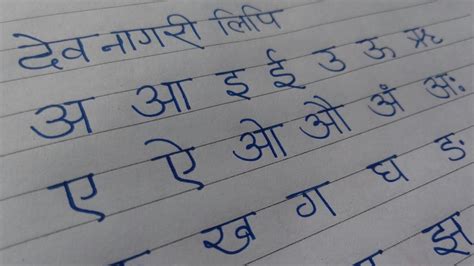 देवनागरी लिपि
अ आ इ ई उ ऊ ऋ
ए ऐ ओ औ अं अः
ख ग घ ङ
झ